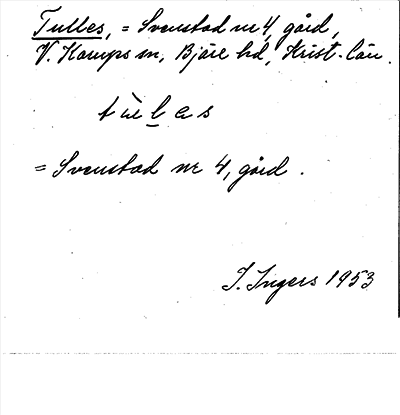 Tulles, = Svenstad nr 4, gård,
V. Karups sn, Bjäre hd, Krist. län.
tùl̲as
= Svenstad nr 4, gård.
I. Ingers 1953